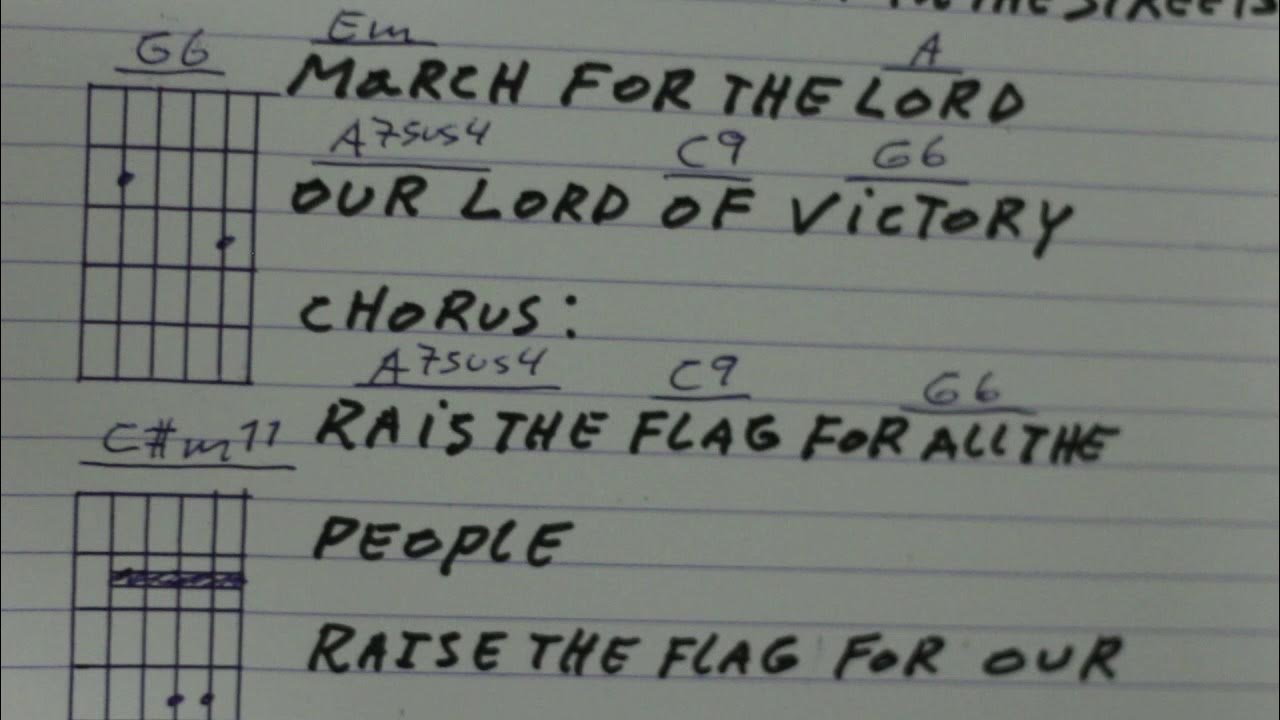 THE STREETS
G6 Em A
MaRCH FOR THE LORD
A7sus4 C9 G6
OUR LORD OF ViCTORY
CHORUS:
A7sus4 C9 G6
C#m11 RAiS THE FLAG FOR ALL THE
PEOPLE
RAISE THE FLAG FOR OUR